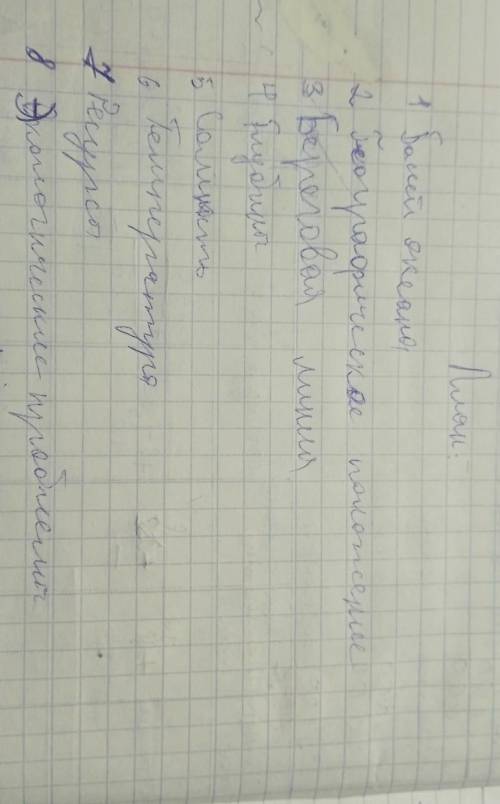 План:
1 Басей океана
2 Географическое положение
3 Береговая линия
4 Глубины
5 Солёность
6 Температура
7 Ресурсы
8 Экологические проблемы